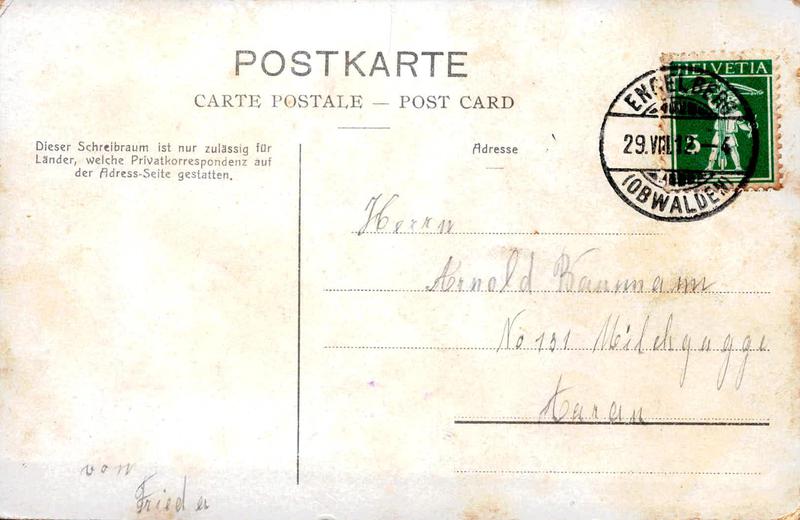 POSTKARTE
CARTE POSTALE — POST CARD
Dieser Schreibraum ist nur zulässig für
Länder, welche Privatkorrespondenz auf
der Adress-Seite gestatten.
Adresse
HELVETIA
5
ENGELBERG
29.VIII.12.–4
(OBWALDEN)
Herrn
Arnold Baumann
No 131 Milchgasse
Aarau
von
Frieda